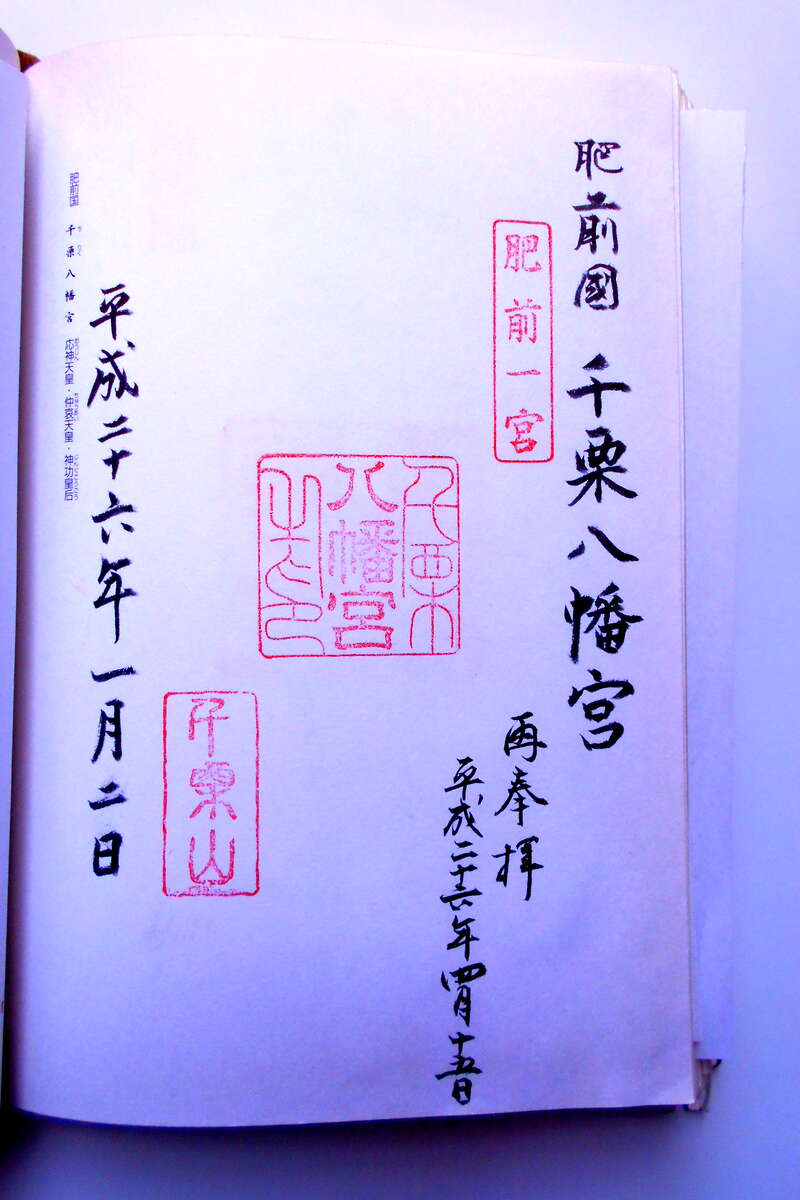 肥前國 千栗八幡宮
肥前一宮
再奉拝
平成二十六年四月十五日
千栗
八幡宮
千栗山
平成二十六年一月二日
肥前国 千栗八幡宮 応神天皇・仲哀天皇・神功皇后